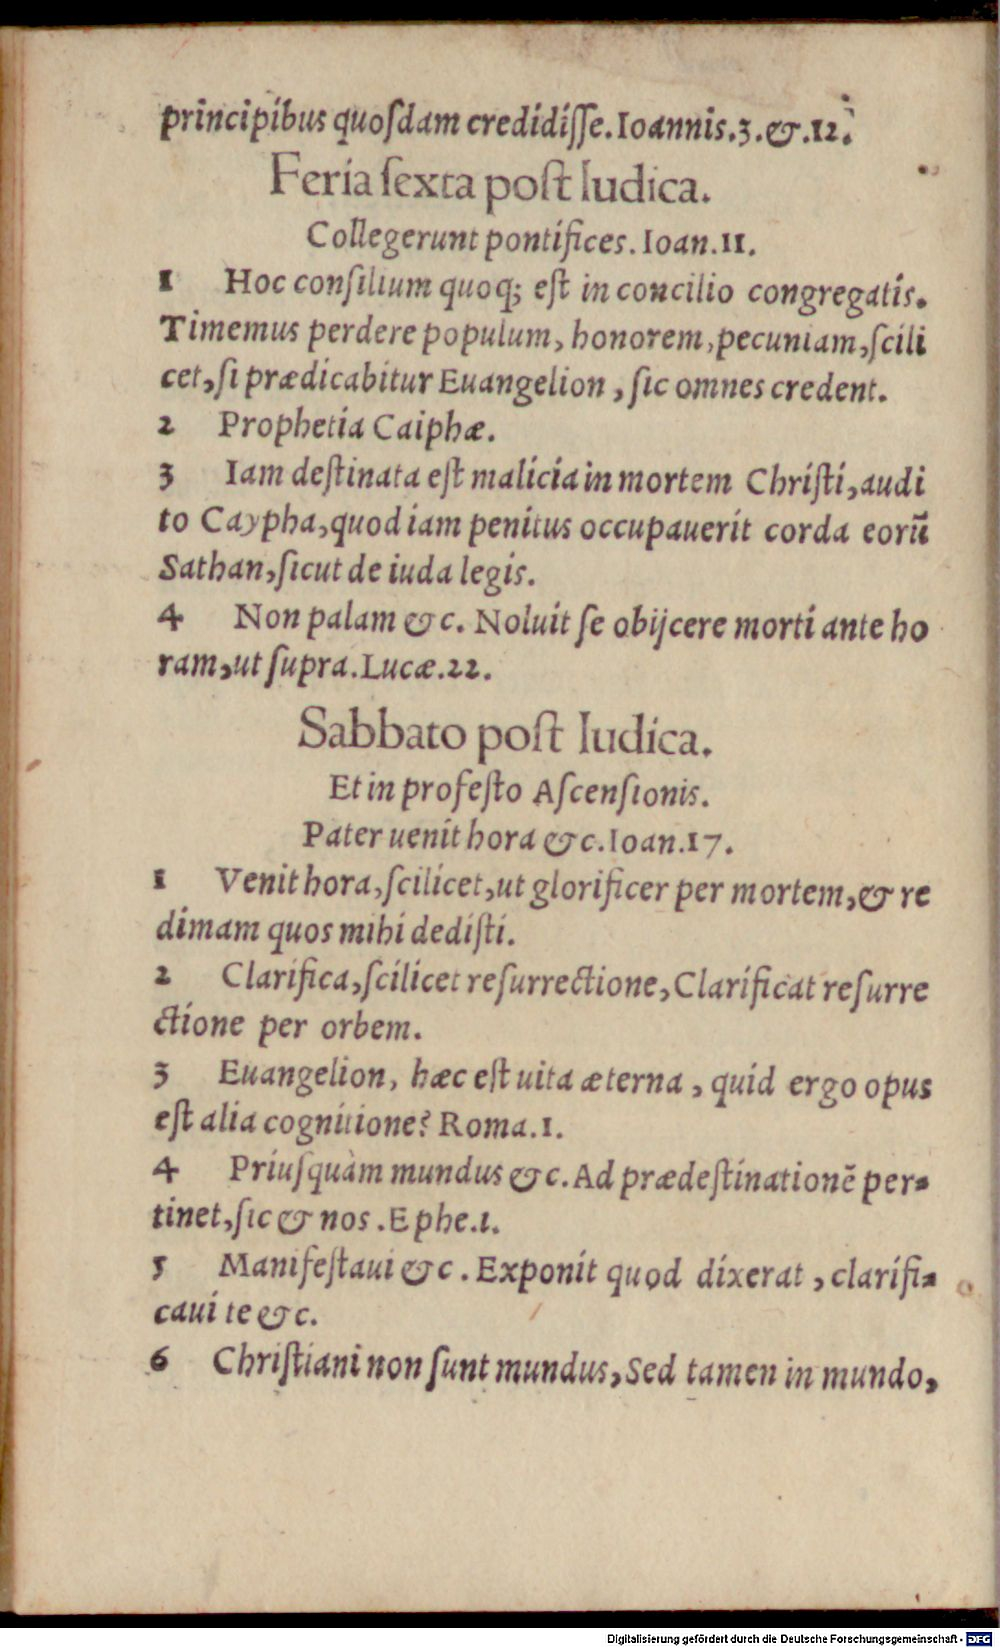 principibus quoſdam credidiſſe. Ioannis.3.&.12.
Feria ſexta poſt Iudica.
Collegerunt pontifices. Ioan.11.
1 Hoc conſilium quoq; eſt in concilio congregatis.
Timemus perdere populum, honorem, pecuniam, ſcili
cet, ſi prædicabitur Euangelion, ſic omnes credent.
2 Prophetia Caiphæ.
3 Iam deſtinata eſt malicia in mortem Chriſti, audi
to Caypha, quod iam penitus occupauerit corda eorū
Sathan, ſicut de iuda legis.
4 Non palam &c. Noluit ſe obijcere morti ante ho
ram, ut ſupra. Lucæ.22.
Sabbato poſt Iudica.
Et in profeſto Aſcenſionis.
Pater uenit hora &c. Ioan.17.
1 Venit hora, ſcilicet, ut glorificer per mortem, & re
dimam quos mihi dediſti.
2 Clarifica, ſcilicet reſurrectione, Clarificat reſurre
ctione per orbem.
3 Euangelion, hæc eſt uita æterna, quid ergo opus
eſt alia cognitione? Roma.1.
4 Priuſquàm mundus &c. Ad prædeſtinationē per-
tinet, ſic & nos. Ephe.1.
5 Manifeſtaui &c. Exponit quod dixerat, clarifi-
caui te &c.
6 Chriſtiani non ſunt mundus, Sed tamen in mundo,
Digitalisierung gefördert durch die Deutsche Forschungsgemeinschaft - DFG